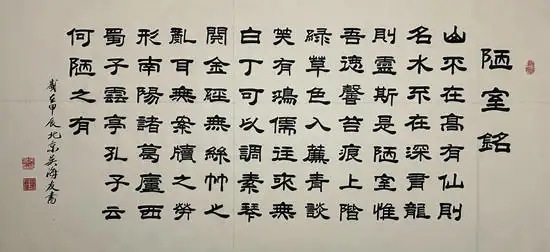 陋室銘
山不在高有仙則
名水不在深有龍
則靈斯是陋室惟
吾德馨苔痕上階
綠草色入簾青談
笑有鴻儒往來無
白丁可以調素琴
閱金經無絲竹之
亂耳無案牘之勞
形南陽諸葛廬西
蜀子雲亭孔子云
何陋之有
歲在甲辰北京吳海友書